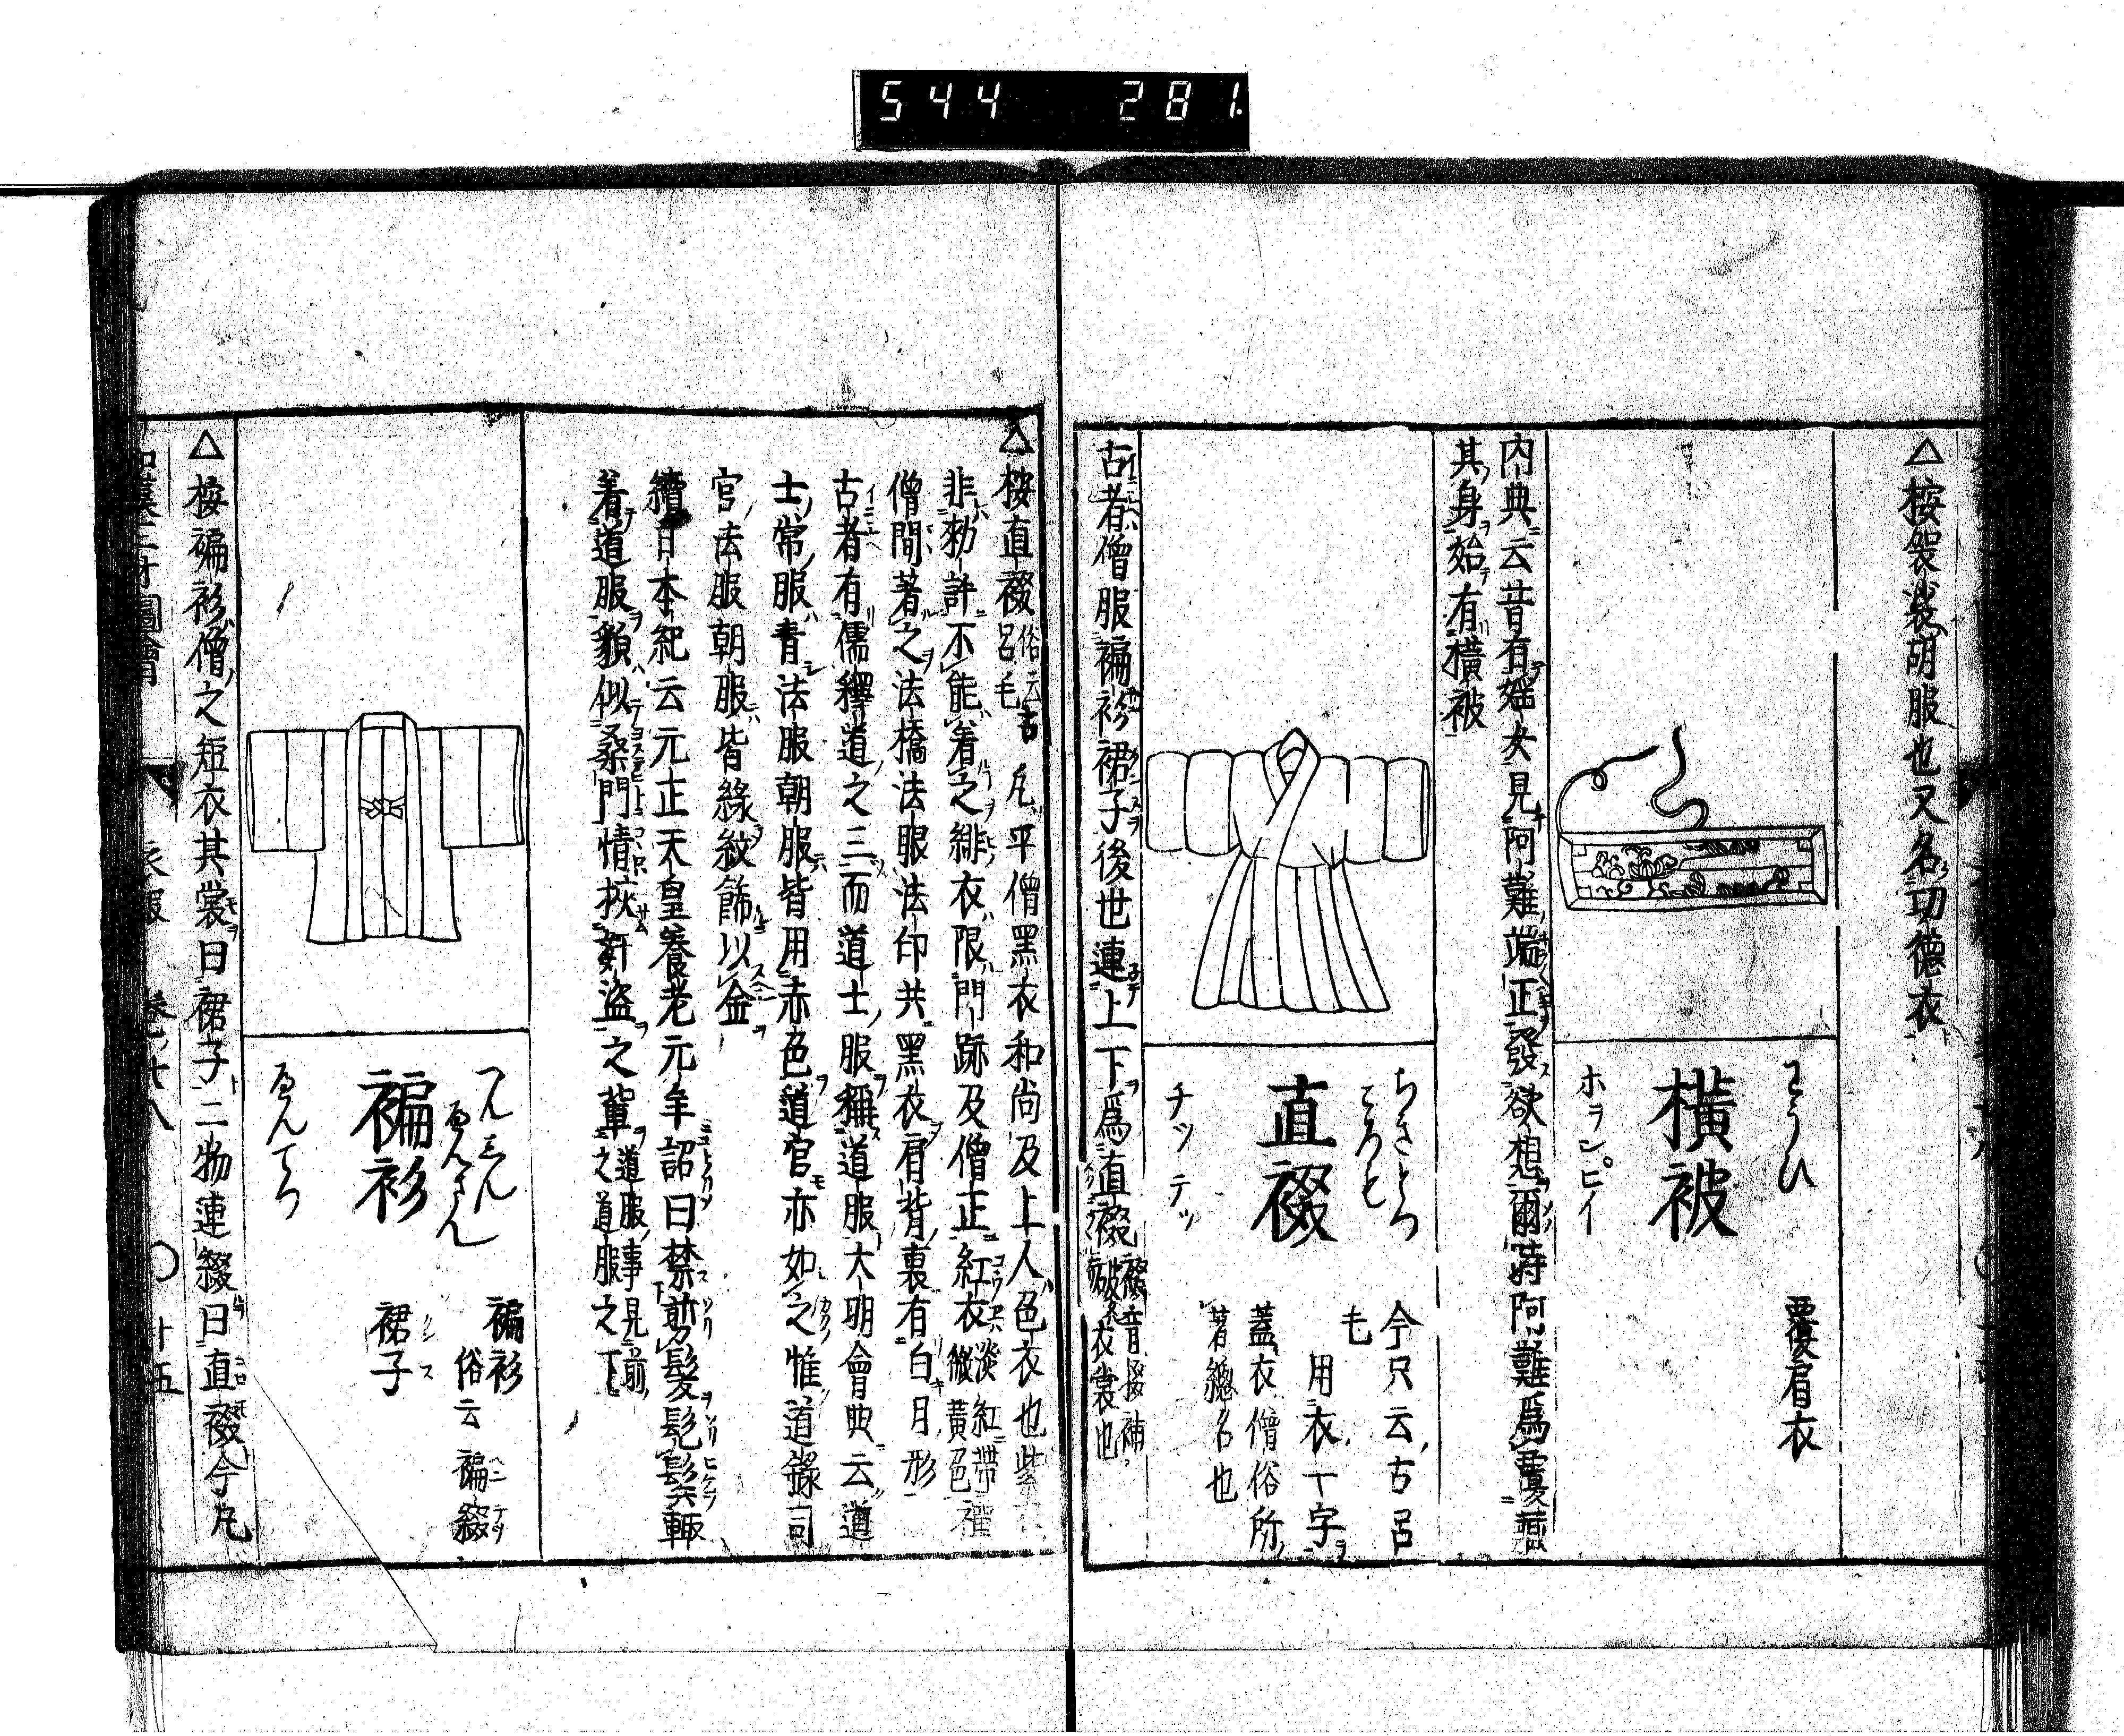 544 281
△按袈裟胡服也又名功德衣
わうひ
橫被
ホランピイ
覆肩衣
內典云昔有婬女見阿難端正發欲想爾時阿難爲覆
其身始有橫被
ぢきとつ
ころも
直綴
チツテツ
今只云古呂
毛
用衣一字
蓋衣僧俗所
著總名也
古者僧服褊衫裙子後世連上下爲直綴
綴音掇補
破衣裳也
△按直綴
俗云古
呂毛
凡平僧黑衣和尚及上人色衣也紫
非勅許不能着之緋衣限門跡及僧正紅衣
淡紅帶
微黃色
僧間著之法橋法服法印共黑衣肩背裏有白月形
古者有儒釋道之三而道士服稱道服大明會典云道
士常服青法服朝服皆用赤色道官亦如之惟道錄司
官法服朝服皆綠紋飾以金
續日本紀云元正天皇養老元年詔曰禁剪髮髡鬚輙
着道服貌似桑門情挾奸盜之輩
道服事見前
之道服之下
へんさん
褊衫
褊衫
俗云褊綴
ヘンテツ
裙子
クンス
△按褊衫僧之短衣其裳曰裙子二物連綴曰直綴今凡
和漢三才圖會
衣服
卷廿八
〇
廿五